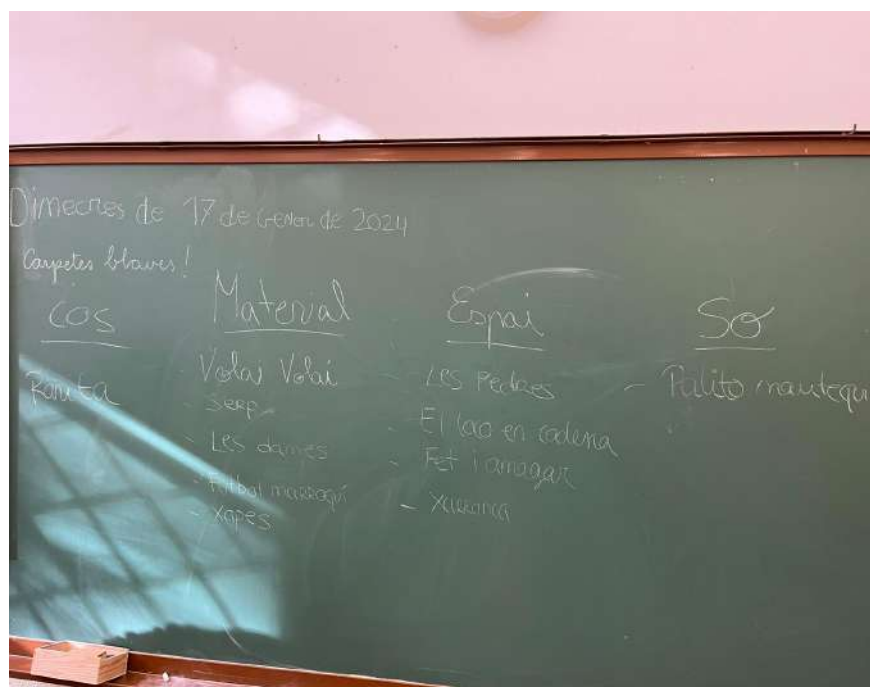 Dimecres de 17 de Gener de 2024
Carpetes blaves!
Cos
Ranita
Material
Volai Volai
- Serp
- Les dames
- Futbol marroquí
- Xapes
Espai
- Les Pedres
- El lao en cadena
- Fet i amagar
- Xarranca
So
- Palito mantequi